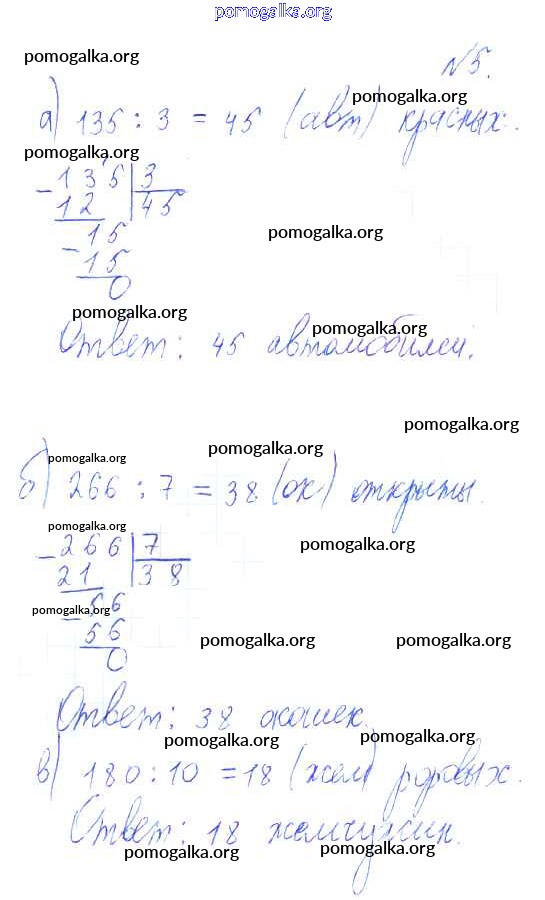 pomogalka.org
pomogalka.org
№5.
pomogalka.org
а) 135 : 3 = 45 (авт) красных.
pomogalka.org
135 3
12 45
15
pomogalka.org
15
0
pomogalka.org
pomogalka.org
Ответ: 45 автомобилей.
pomogalka.org
pomogalka.org
pomogalka.org
б) 266 : 7 = 38 (ок) открыты.
pomogalka.org
pomogalka.org
266 7
21 38
56
pomogalka.org
56
pomogalka.org
pomogalka.org
0
Ответ: 38 окошек.
pomogalka.org
pomogalka.org
в) 180 : 10 = 18 (жем) розовых.
Ответ: 18 жемчужин.
pomogalka.org
pomogalka.org